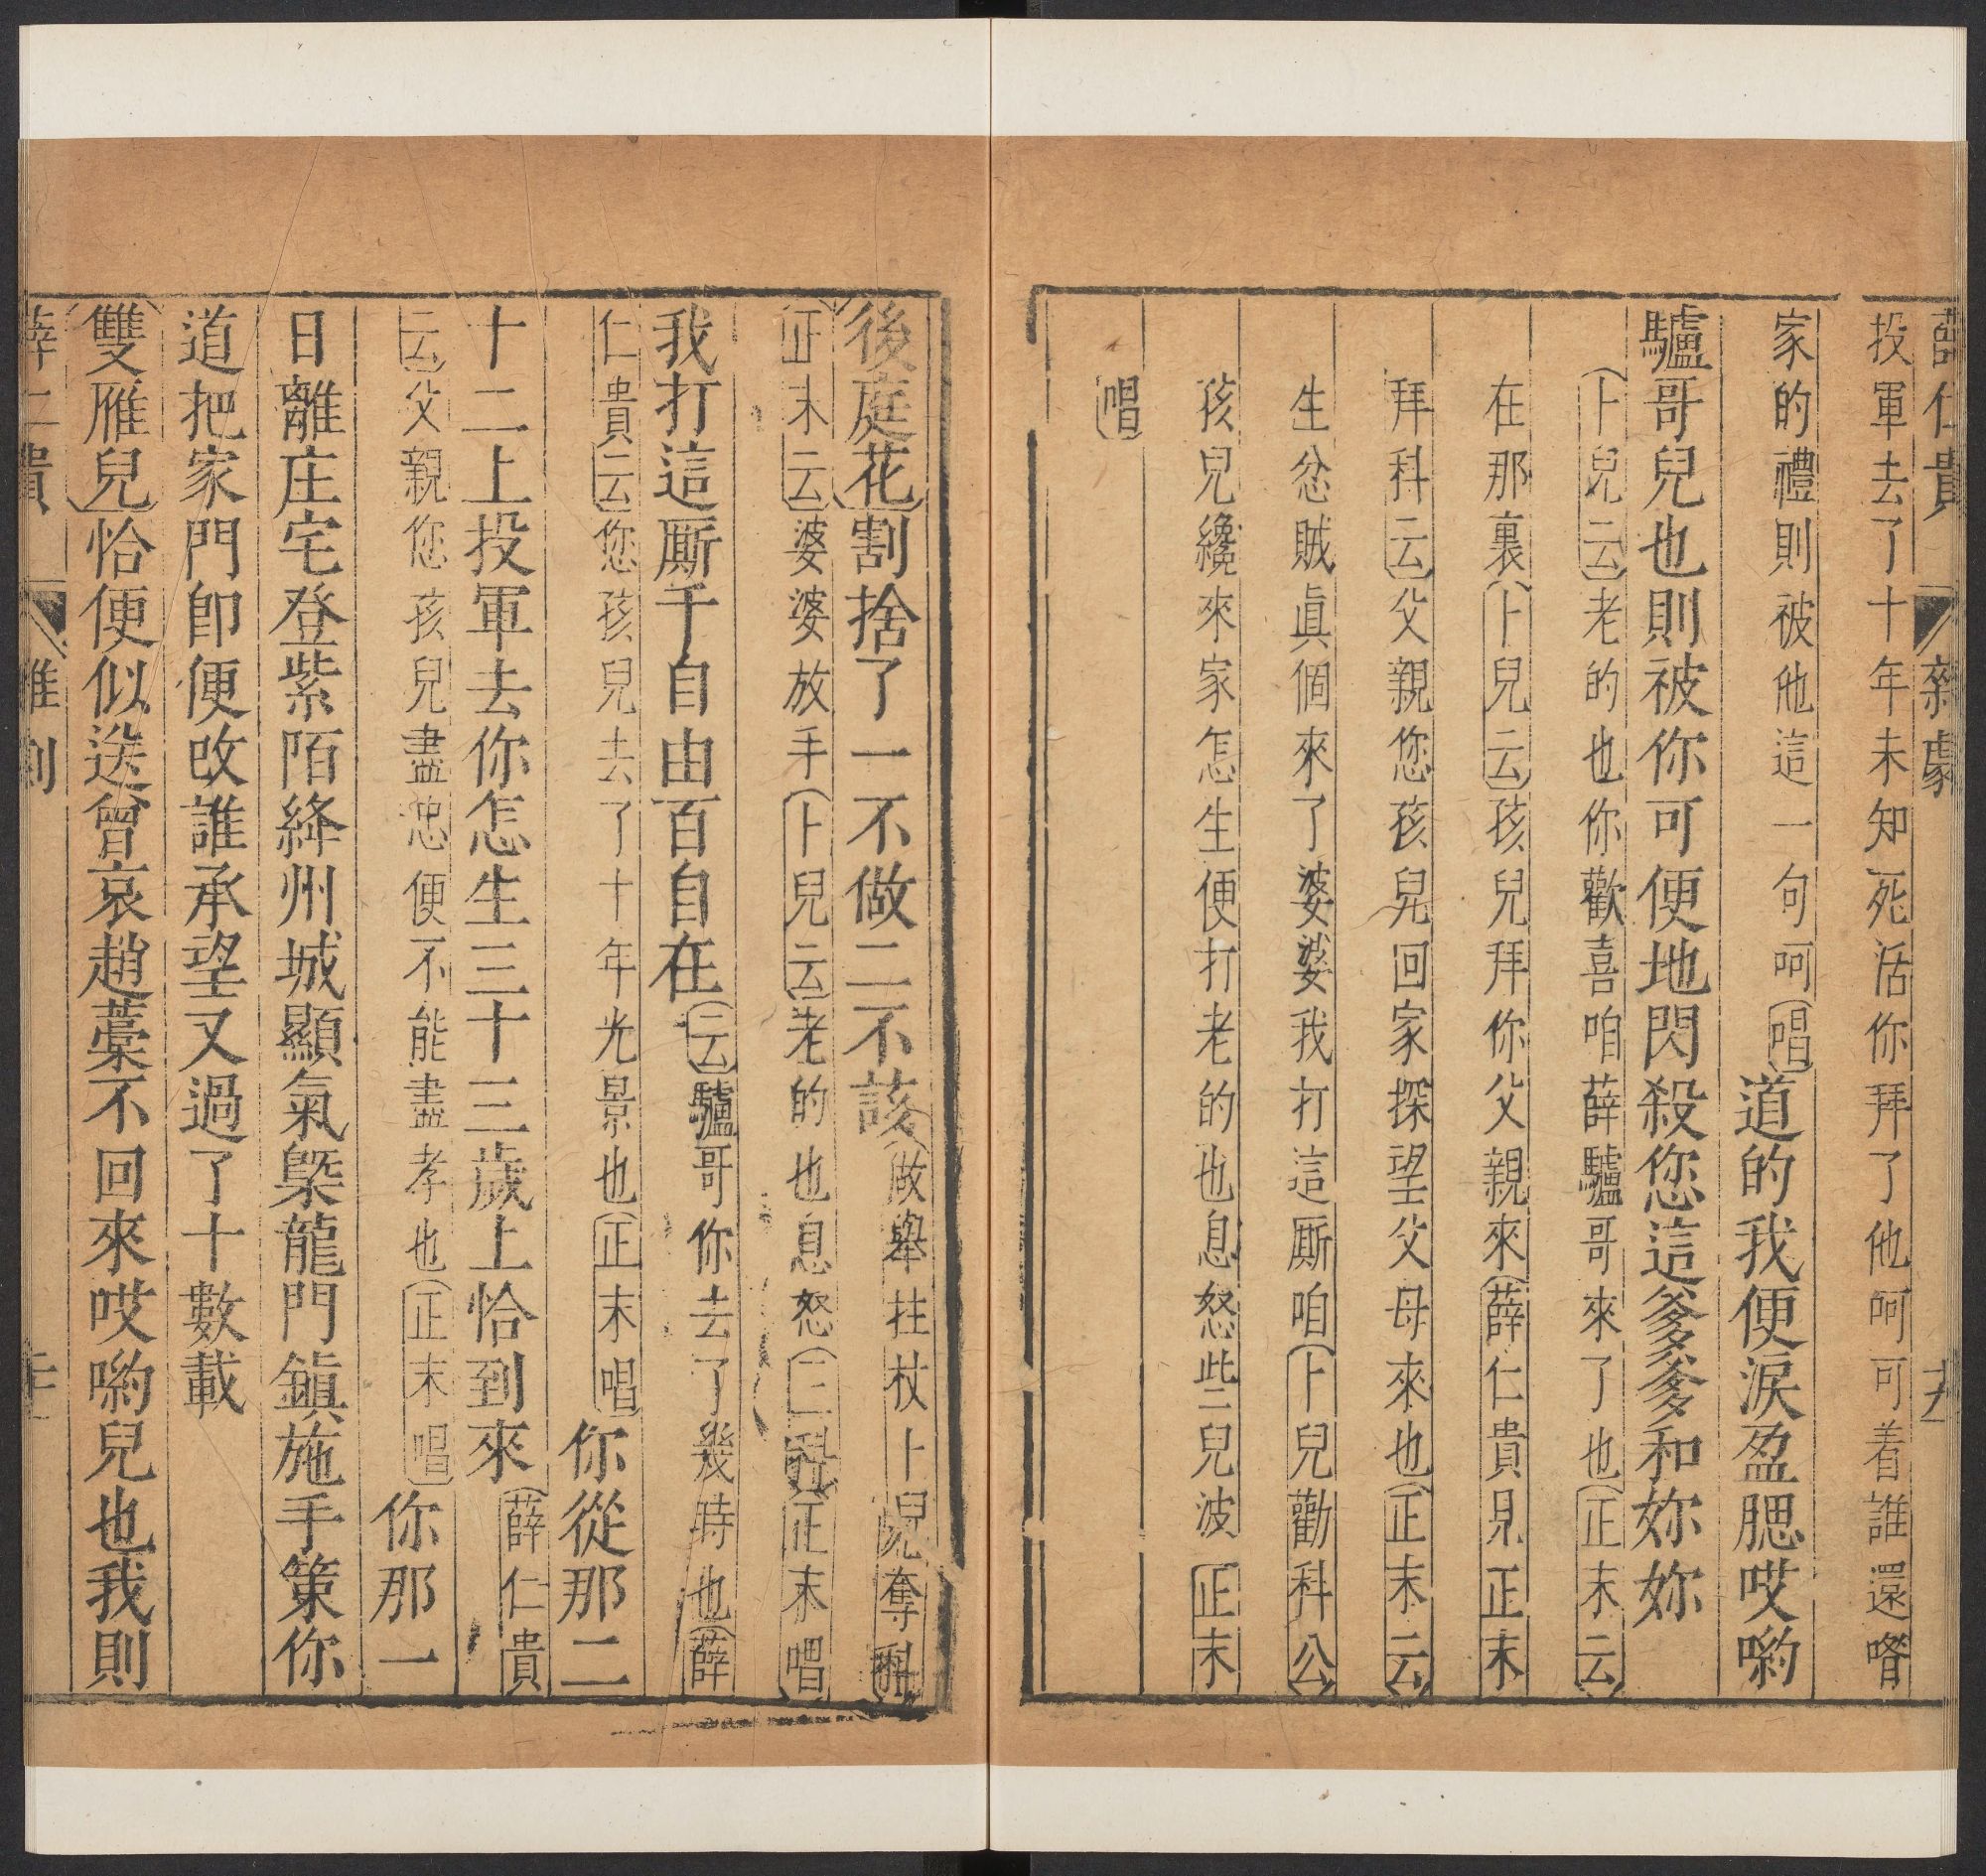 薛仁貴 雜劇
投軍去了十年未知死活你拜了他呵可着誰還喒
家的禮則被他這一句呵(唱)道的我便淚盈腮哎喲
驢哥兒也則被你可便地閃殺您這爹爹和妳妳
(卜兒云)老的也你歡喜咱薛驢哥來了也(正末云)
在那裏(卜兒云)孩兒拜你父親來(薛仁貴見正末
拜科云)父親您孩兒回家探望父母來也(正末云)
生忿賊眞個來了婆婆我打這厮咱(卜兒勸科云)
孩兒纔來家怎生便打老的也息怒些兒波(正末
唱)
(後庭花)割捨了一不做二不該(做舉拄杖卜兒奪科)
(正末云)婆婆放手(卜兒云)老的也息怒(二科)(正末唱)
我打這厮千自由百自在(云)驢哥你去了幾時也(薛
仁貴云)您孩兒去了十年光景也(正末唱)你從那二
十二上投軍去你怎生三十三歲上恰到來(薛仁貴
云)父親您孩兒盡忠便不能盡孝也(正末唱)你那一
日離庄宅登紫陌絳州城顯氣槩龍門鎭施手策你
道把家門卽便改誰承望又過了十數載
(雙雁兒)恰便似送曾哀趙藁不回來哎喲兒也我則
薛仁貴